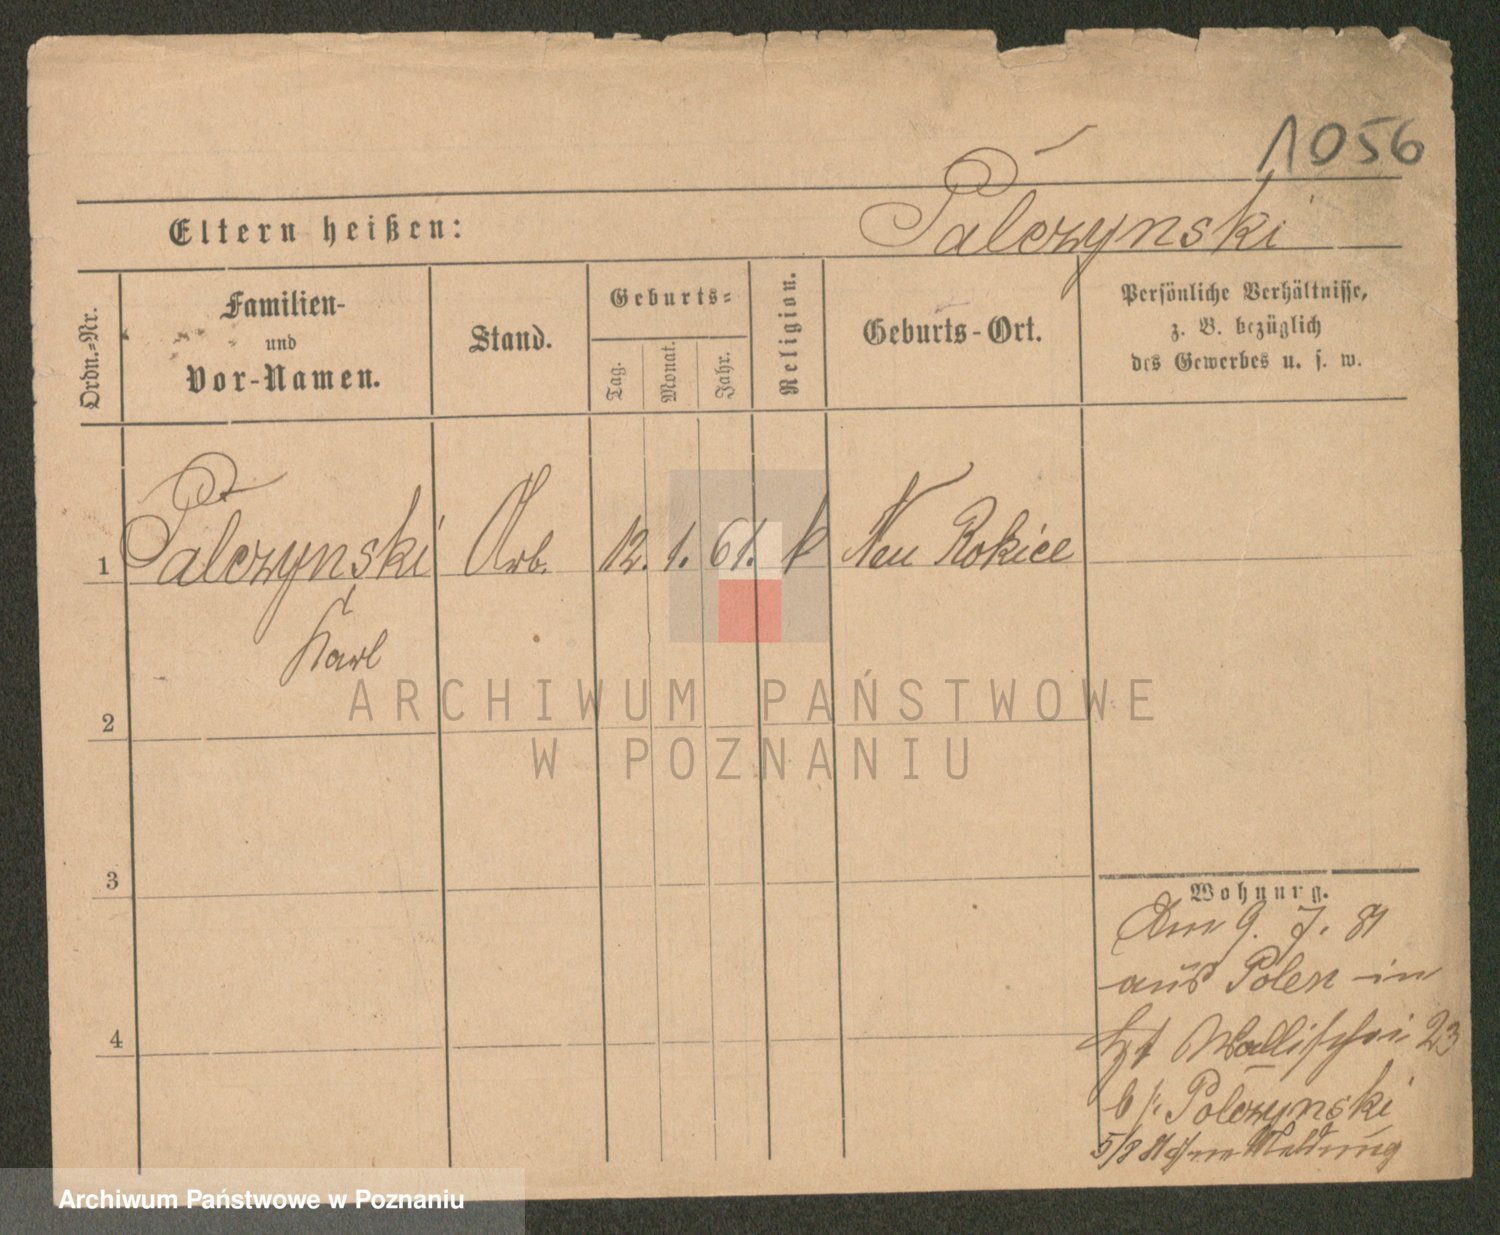 1056
Eltern heißen:
Palczynski
Ordn.-Nr.
Familien-
und
Vor-Namen.
Stand.
Geburts-
Tag.
Monat.
Jahr.
Religion.
Geburts-Ort.
Persönliche Verhältnisse,
z. B. bezüglich
des Gewerbes u. s. w.
1 Palczynski Arb. 12. 1. 61. k Neu Rokice
Karl
ARCHIWUM PAŃSTWOWE
W POZNANIU
2
3
4
Wohnung.
Am 9. 7. 81
aus Polen in
Wallischei 23
b/ Palczynski
5/8 81 Meldung
Archiwum Państwowe w Poznaniu